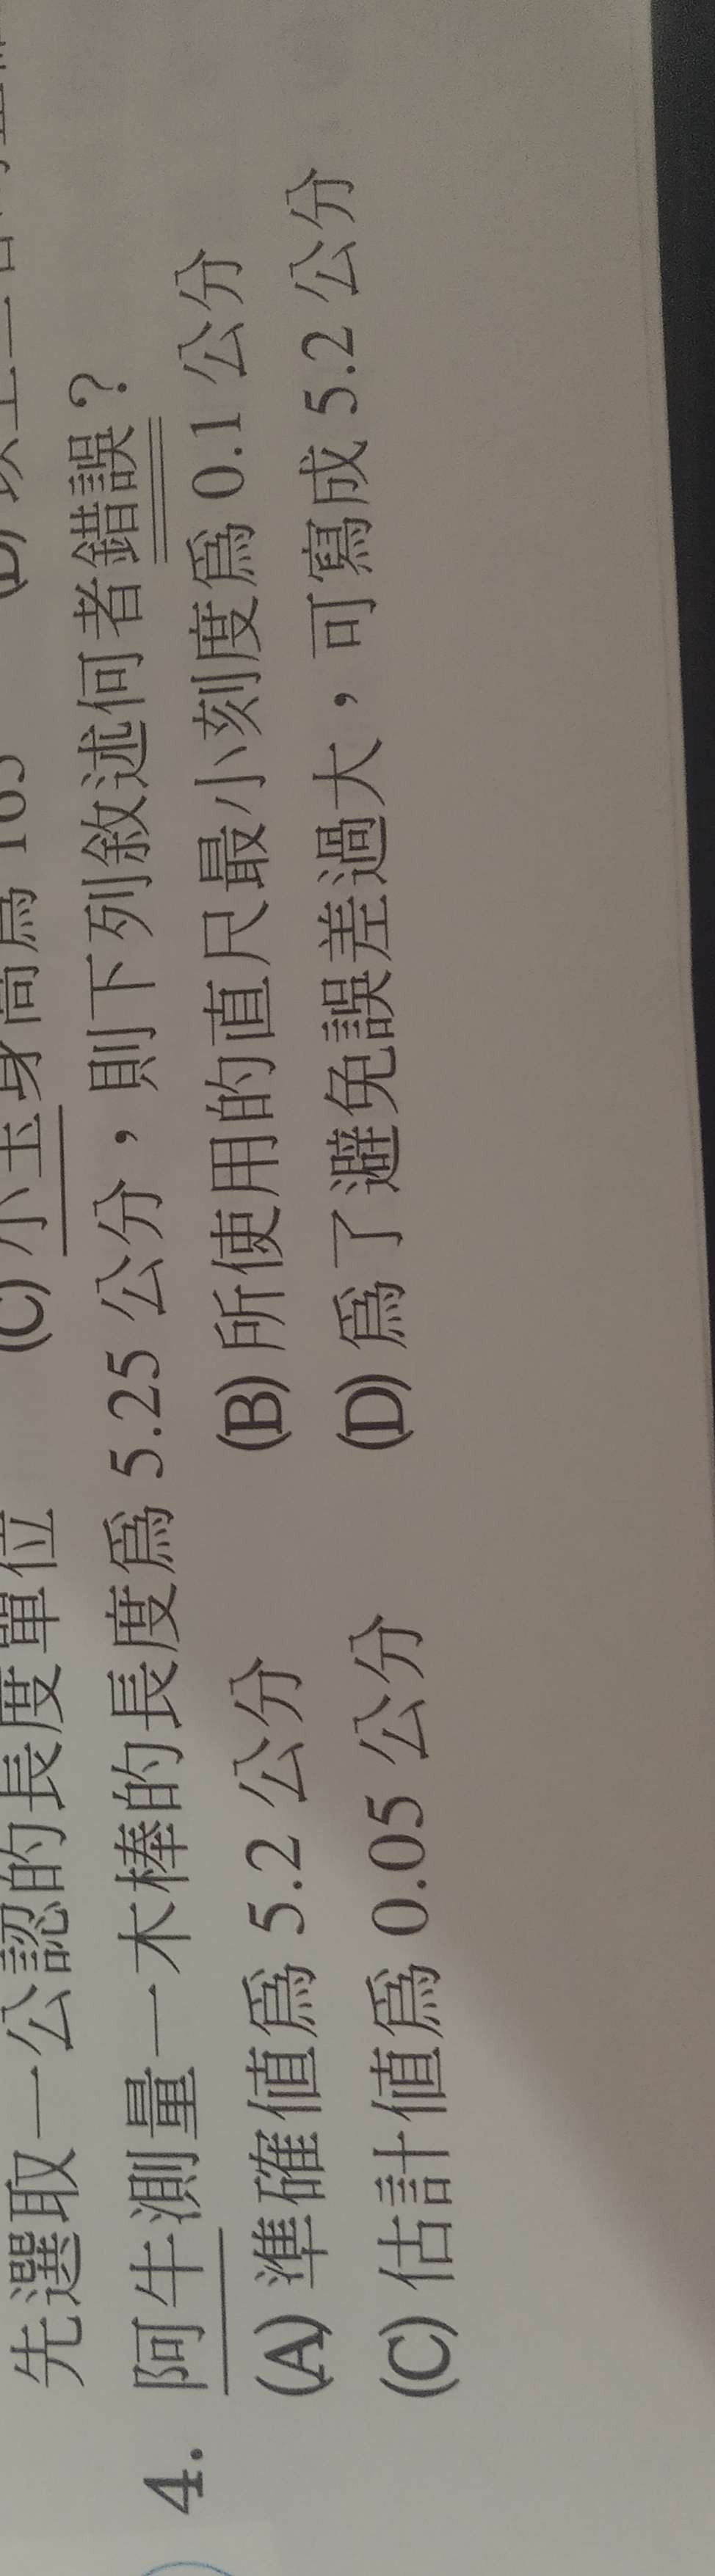 先選取一公認的長度單位 (C) 小玉身高為 165 (D) 以上
4. 阿牛測量一木棒的長度為 5.25 公分，則下列敘述何者錯誤？
(A) 準確值為 5.2 公分 (B) 所使用的直尺最小刻度為 0.1 公分
(C) 估計值為 0.05 公分 (D) 為了避免誤差過大，可寫成 5.2 公分